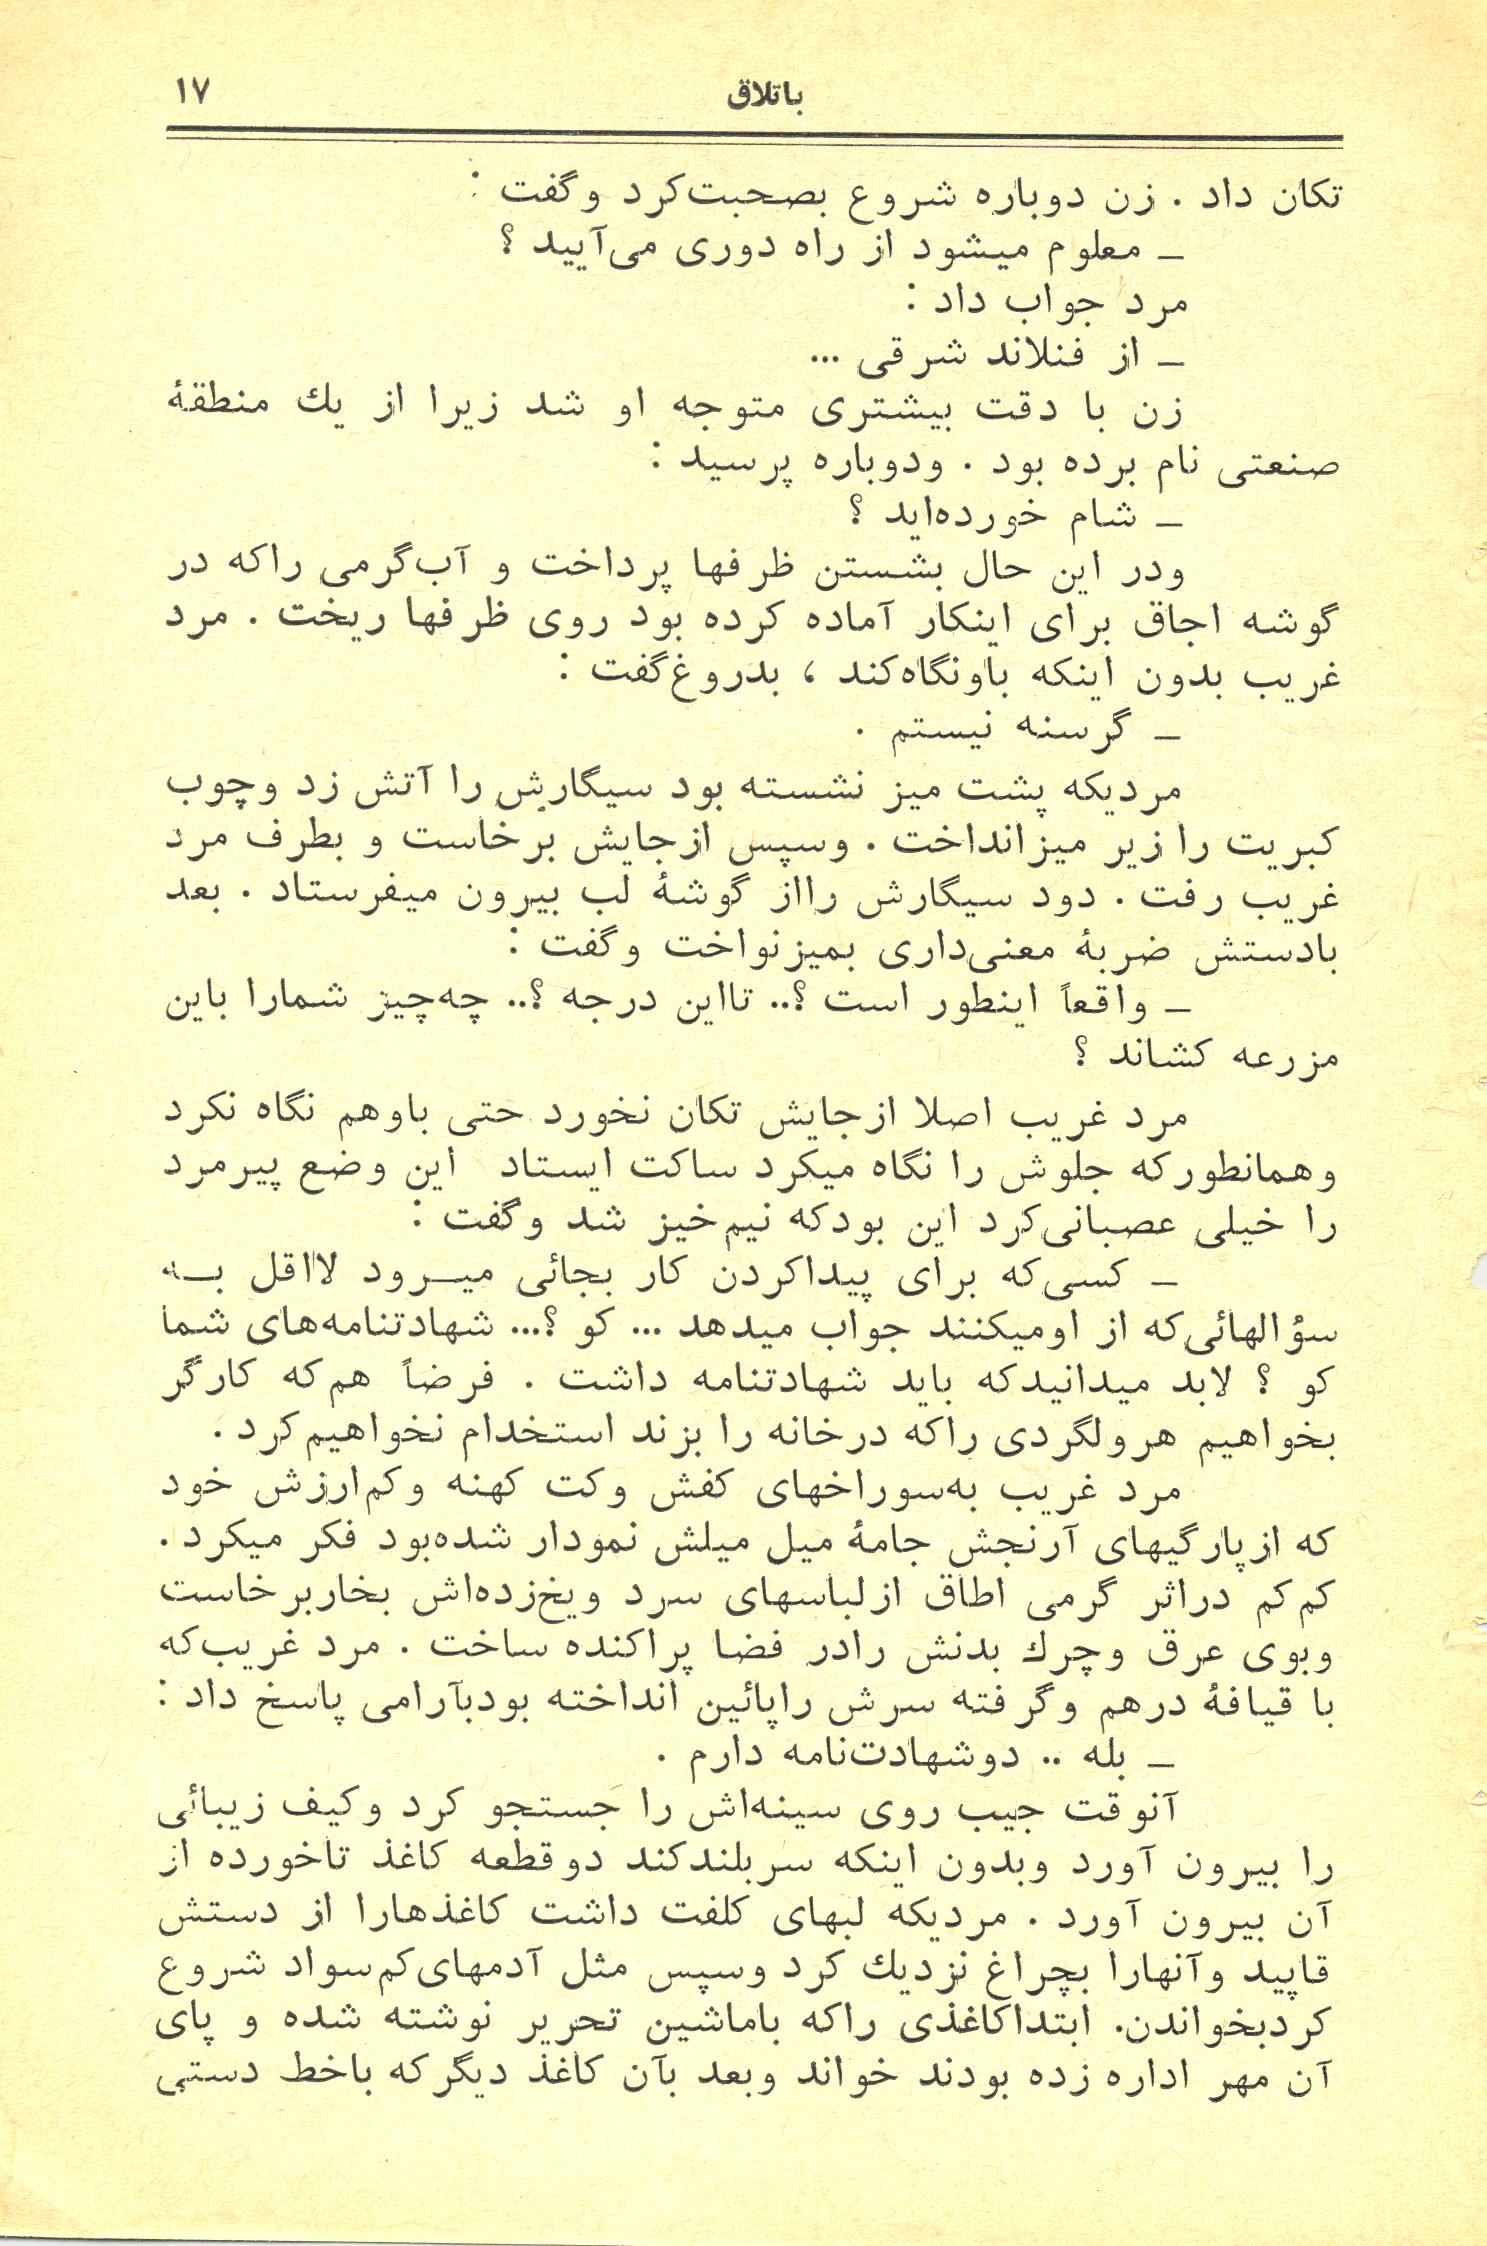 باتلاق ۱۷
تکان داد . زن دوباره شروع بصحبت‌کرد وگفت :
ـ معلوم میشود از راه دوری می‌آیید ؟
مرد جواب داد :
ـ از فنلاند شرقی ...
زن با دقت بیشتری متوجه او شد زیرا از یك منطقهٔ
صنعتی نام برده بود . ودوباره پرسید :
ـ شام خورده‌اید ؟
ودر این حال بشستن ظرفها پرداخت و آب‌گرمی راکه در
گوشه اجاق برای اینکار آماده کرده بود روی ظرفها ریخت . مرد
غریب بدون اینکه باونگاه‌کند ، بدروغ‌گفت :
ـ گرسنه نیستم .
مردیکه پشت میز نشسته بود سیگارش را آتش زد وچوب
کبریت را زیر میزانداخت . وسپس ازجایش برخاست و بطرف مرد
غریب رفت . دود سیگارش رااز گوشهٔ لب بیرون میفرستاد . بعد
بادستش ضربهٔ معنی‌داری بمیزنواخت وگفت :
ـ واقعاً اینطور است ؟.. تااین درجه ؟.. چه‌چیز شمارا باین
مزرعه کشاند ؟
مرد غریب اصلا ازجایش تکان نخورد حتی باوهم نگاه نکرد
وهمانطورکه جلوش را نگاه میکرد ساکت ایستاد این وضع پیرمرد
را خیلی عصبانی‌کرد این بودکه نیم‌خیز شد وگفت :
ـ کسی‌که برای پیداکردن کار بجائی میـرود لااقل بـه
سؤالهائی‌که از اومیکنند جواب میدهد ... کو ؟... شهادتنامه‌های شما
کو ؟ لابد میدانیدکه باید شهادتنامه داشت . فرضاً هم‌که کارگر
بخواهیم هرولگردی راکه درخانه را بزند استخدام نخواهیم‌کرد .
مرد غریب به‌سوراخهای کفش وکت کهنه وکم‌ارزش خود
که ازپارگیهای آرنجش جامهٔ میل میلش نمودار شده‌بود فکر میکرد .
کم‌کم دراثر گرمی اطاق ازلباسهای سرد ویخ‌زده‌اش بخاربرخاست
وبوی عرق وچرك بدنش رادر فضا پراکنده ساخت . مرد غریب‌که
با قیافهٔ درهم وگرفته سرش راپائین انداخته بودبآرامی پاسخ داد :
ـ بله .. دوشهادت‌نامه دارم .
آنوقت جیب روی سینه‌اش را جستجو کرد وکیف زیبائی
را بیرون آورد وبدون اینکه سربلندکند دوقطعه کاغذ تاخورده از
آن بیرون آورد . مردیکه لبهای کلفت داشت کاغذهارا از دستش
قاپید وآنهارا بچراغ نزدیك کرد وسپس مثل آدمهای‌کم‌سواد شروع
کردبخواندن. ابتداکاغذی راکه باماشین تحریر نوشته شده و پای
آن مهر اداره زده بودند خواند وبعد بآن کاغذ دیگرکه باخط دستی